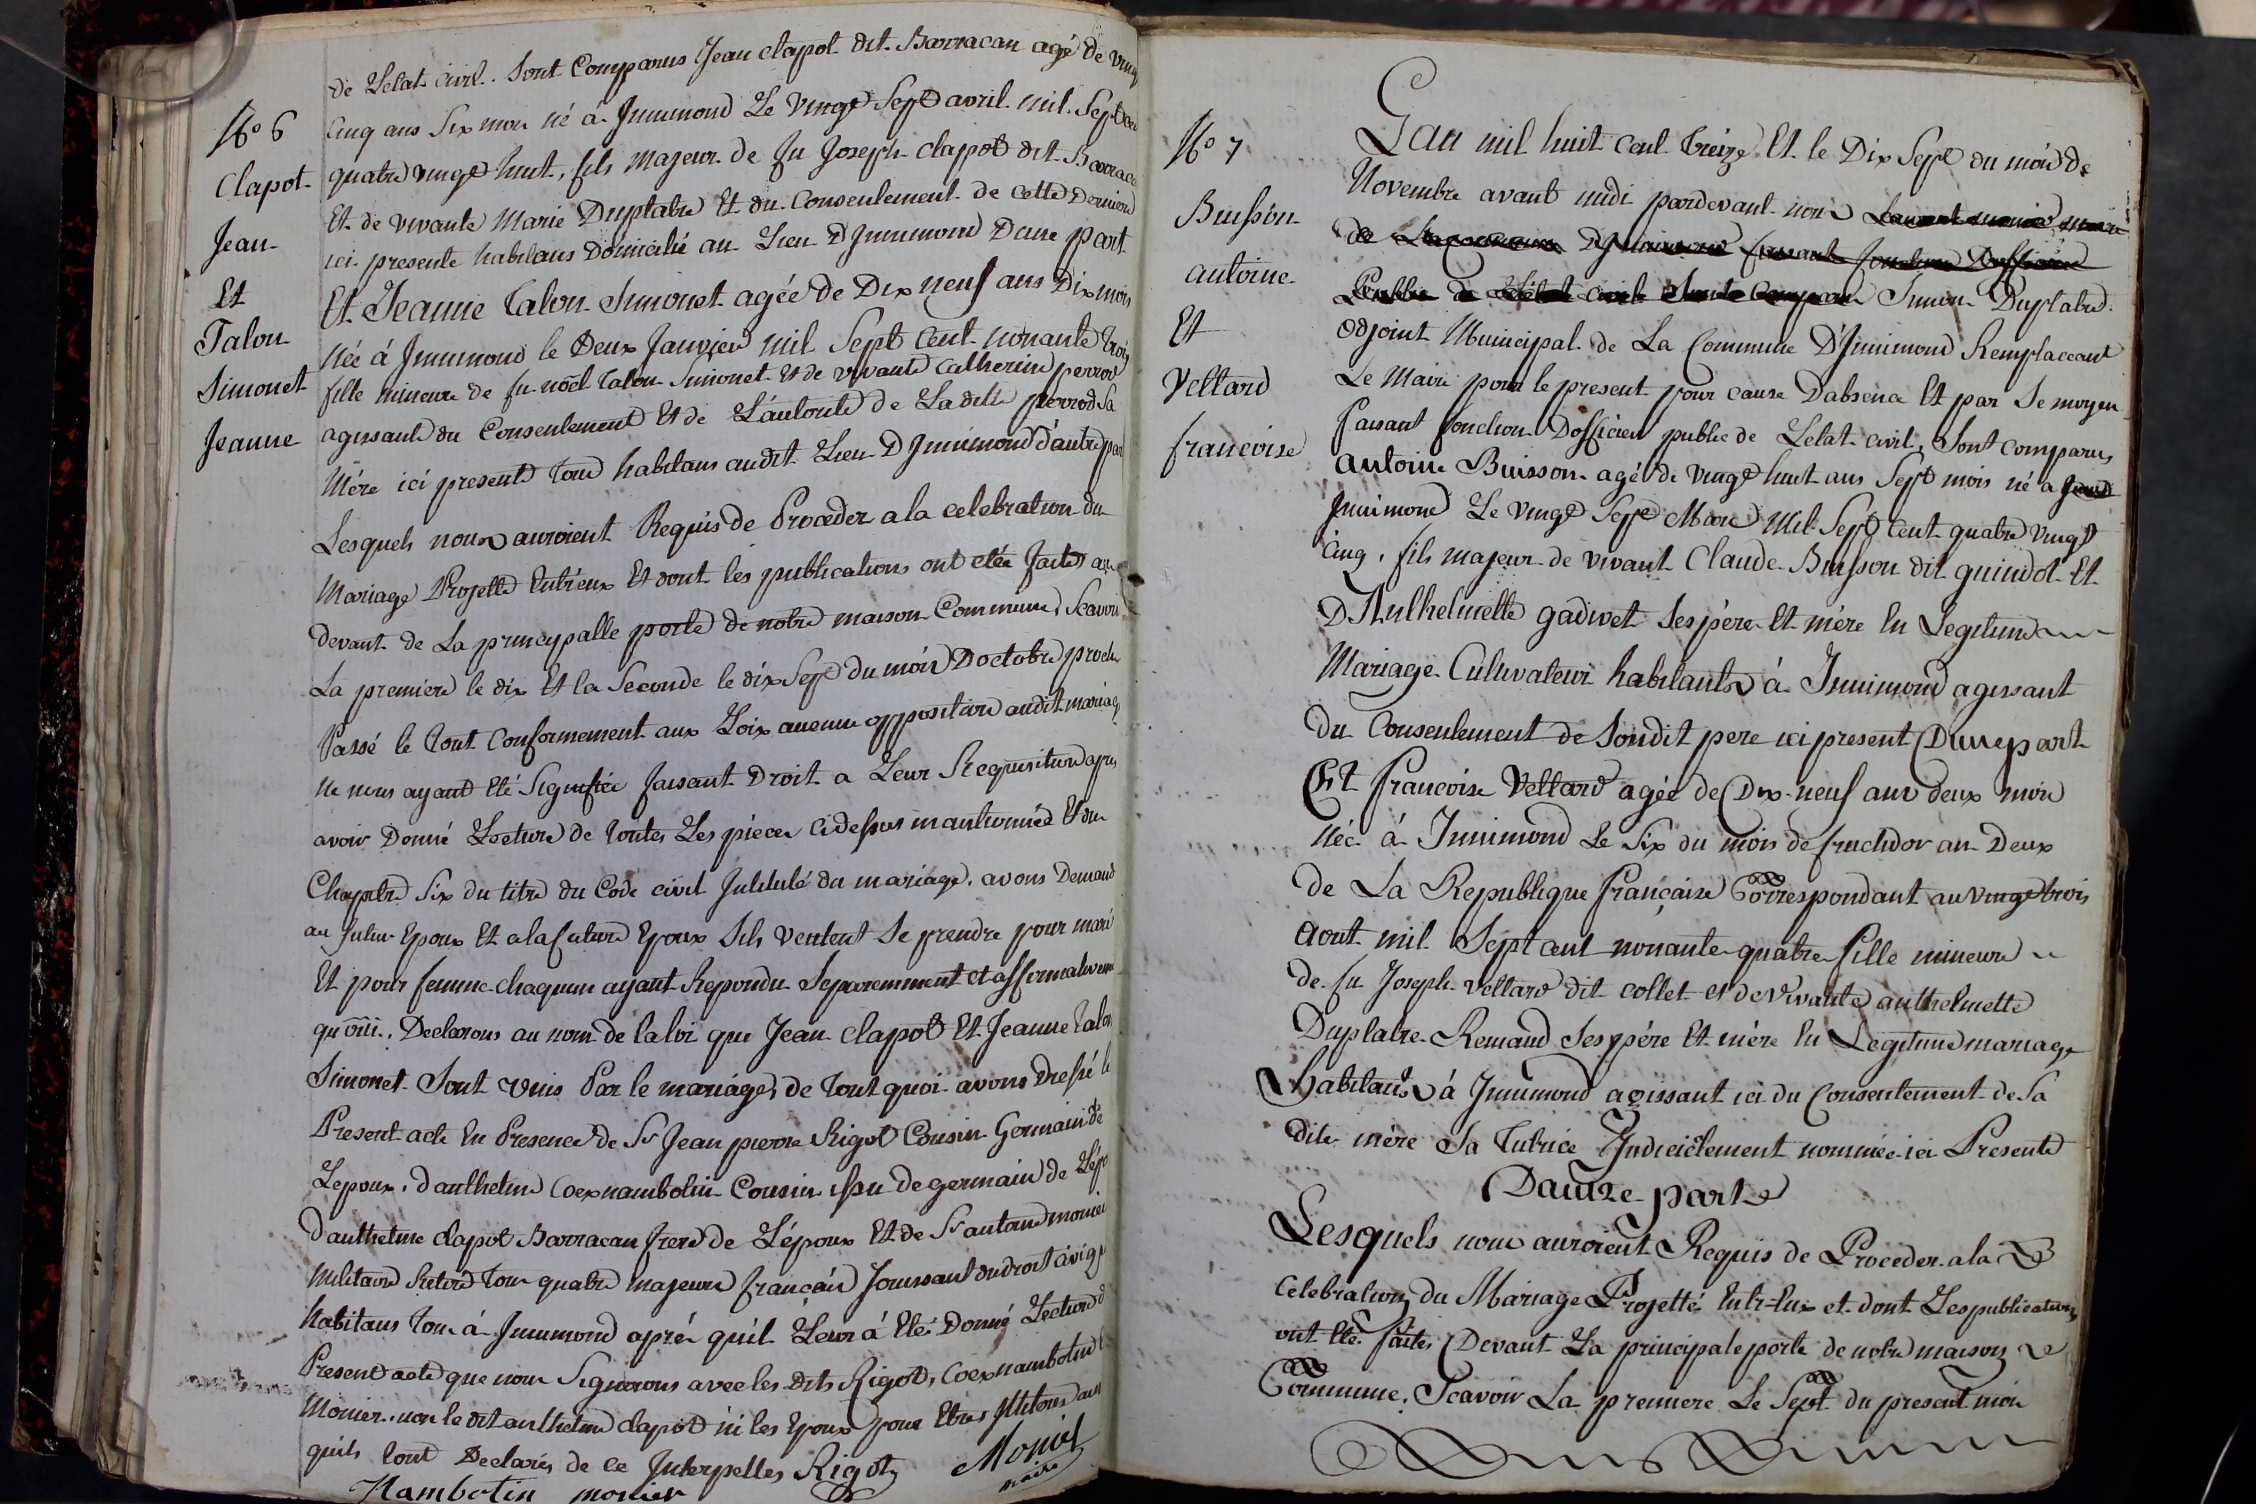 de Letat civil. Sont Comparus Jean Clapot dit Barracan agé de vingt
No 6
Clapot
Jean
Et
Talon
Simonet
Jeanne
Cinq ans Six mois né á Innimond Le vingt Sept avril mil Sept cent
quatre vingt huit, fils majeur de fu Joseph Clapot dit Barracan
Et de vivante Marie Duplatre Et du Consentement de cette Derniere
ici presente habitans Domicilié au Lieu D'Innimond Dune part
Et Jeanne Talon Simonet agée de Dix neuf ans Dix mois
Née á Innimond le Deux Janvier mil Sept Cent nonante trois
fille mineure de fu noel Talon Simonet Et de vivante Catherine perrod
agissante du Consentement Et de L'autorité de La dite perrod Sa
Mére ici presente tous habitans audit Lieu D'Innimond d'autre part
Lesquels nous auroient Requis de Proceder a la celebration du
Mariage Projetté Entr'eux Et dont les publications ont etée faites au
devant de La principalle porte de notre maison Commune, Scavoir
La premiere le dix Et la Seconde le dix Sept du mois Doctobre proche
Passé le tout Conformement aux Loix aucune opposition audit mariage
Ne nous ayant Eté Signifiée faisant Droit a Leur Requisition apres
avoir Donné Lecture de toutes Les pieces cidessus mantionnées Et du
Chapitre Six du titre du Code civil Intitulé du mariage, avons Demandé
au futur Epoux Et a la future Epoux Sils veulent Se prendre pour mari
Et pour femme chaqun ayant Repondu Separemment et affirmativement
qu'oüi, Declarons au nom de la loi que Jean Clapot Et Jeanne Talon
Simonet Sont unis Par le mariage, de tout quoi avons Dressé le
Present acte En Presence de Sr Jean pierre Rigot Cousin Germain de
Lepoux, d'anthelme Coexnambotin Cousin issu de germain de L'epoux
D'anthelme Clapot Barracan frere de L'époux Et de Sr antoine monier
Militaire Retiré tous quatre majeurs francais Jouissant du droit civique
habitans tous á Innimond aprés qu'il Leur á Eté Donné Lecture du
Present acte que nous Signerons avec les Dits Rigot, Coexnambotin Et
Monier. non le dit anthelme Clapot ni les Epoux pour Etres Illiteres ainsi
quils L'ont Declarés de ce Interpellés Rigot
Monier
maire
Nambotin monier
No 7
Buisson
antoine
Et
Vettard
francoise
L'an mil huit Cent treize Et le Dix Sept du mois de
Novembre avant midi pardevant nous
Simon Duplatre
adjoint Municipal de La Commune D'Innimond Remplaceant
Le Maire pour le present pour cause Dabsence Et par Se moyen
faisant fonction Dofficier public de Letat civil, Sont comparus
Antoine Buisson agé de vingt huit ans Sept mois né a
Innimond Le vingt Sept Mars Mil Sept Cent quatre vingt
Cinq, fils majeur de vivant Claude Buisson dit guindot Et
D'Anthelmette gadivet Ses pére Et mére En Legitime
Mariage Cultivateur habitants á Innimond agissant
du Consentement de Sondit pere ici present Dune part
Et francoise Vettard agée de Dix neuf ans deux mois
Née á Innimond Le Six du mois de fructidor an Deux
de La Republique française Correspondant au vingt trois
Aout mil Sept cent nonante quatre fille mineure
de fu Joseph Vettard dit collet et de vivante anthelmette
Duplatre Remand Ses pére Et mére En Legitime mariage
habitans á Innimond agissant ici du Consentement de Sa
dite mére Sa Tutrice Judiciélement nommée ici Presente
Dautre part
Lesquels nous auroient Requis de Proceder a la
Celebration du Mariage Projetté Entr-Eux et dont Les publications
ont Eté faites Devant La principale porte de notre maison
Commune, Scavoir La premiere Le Sept du present mois